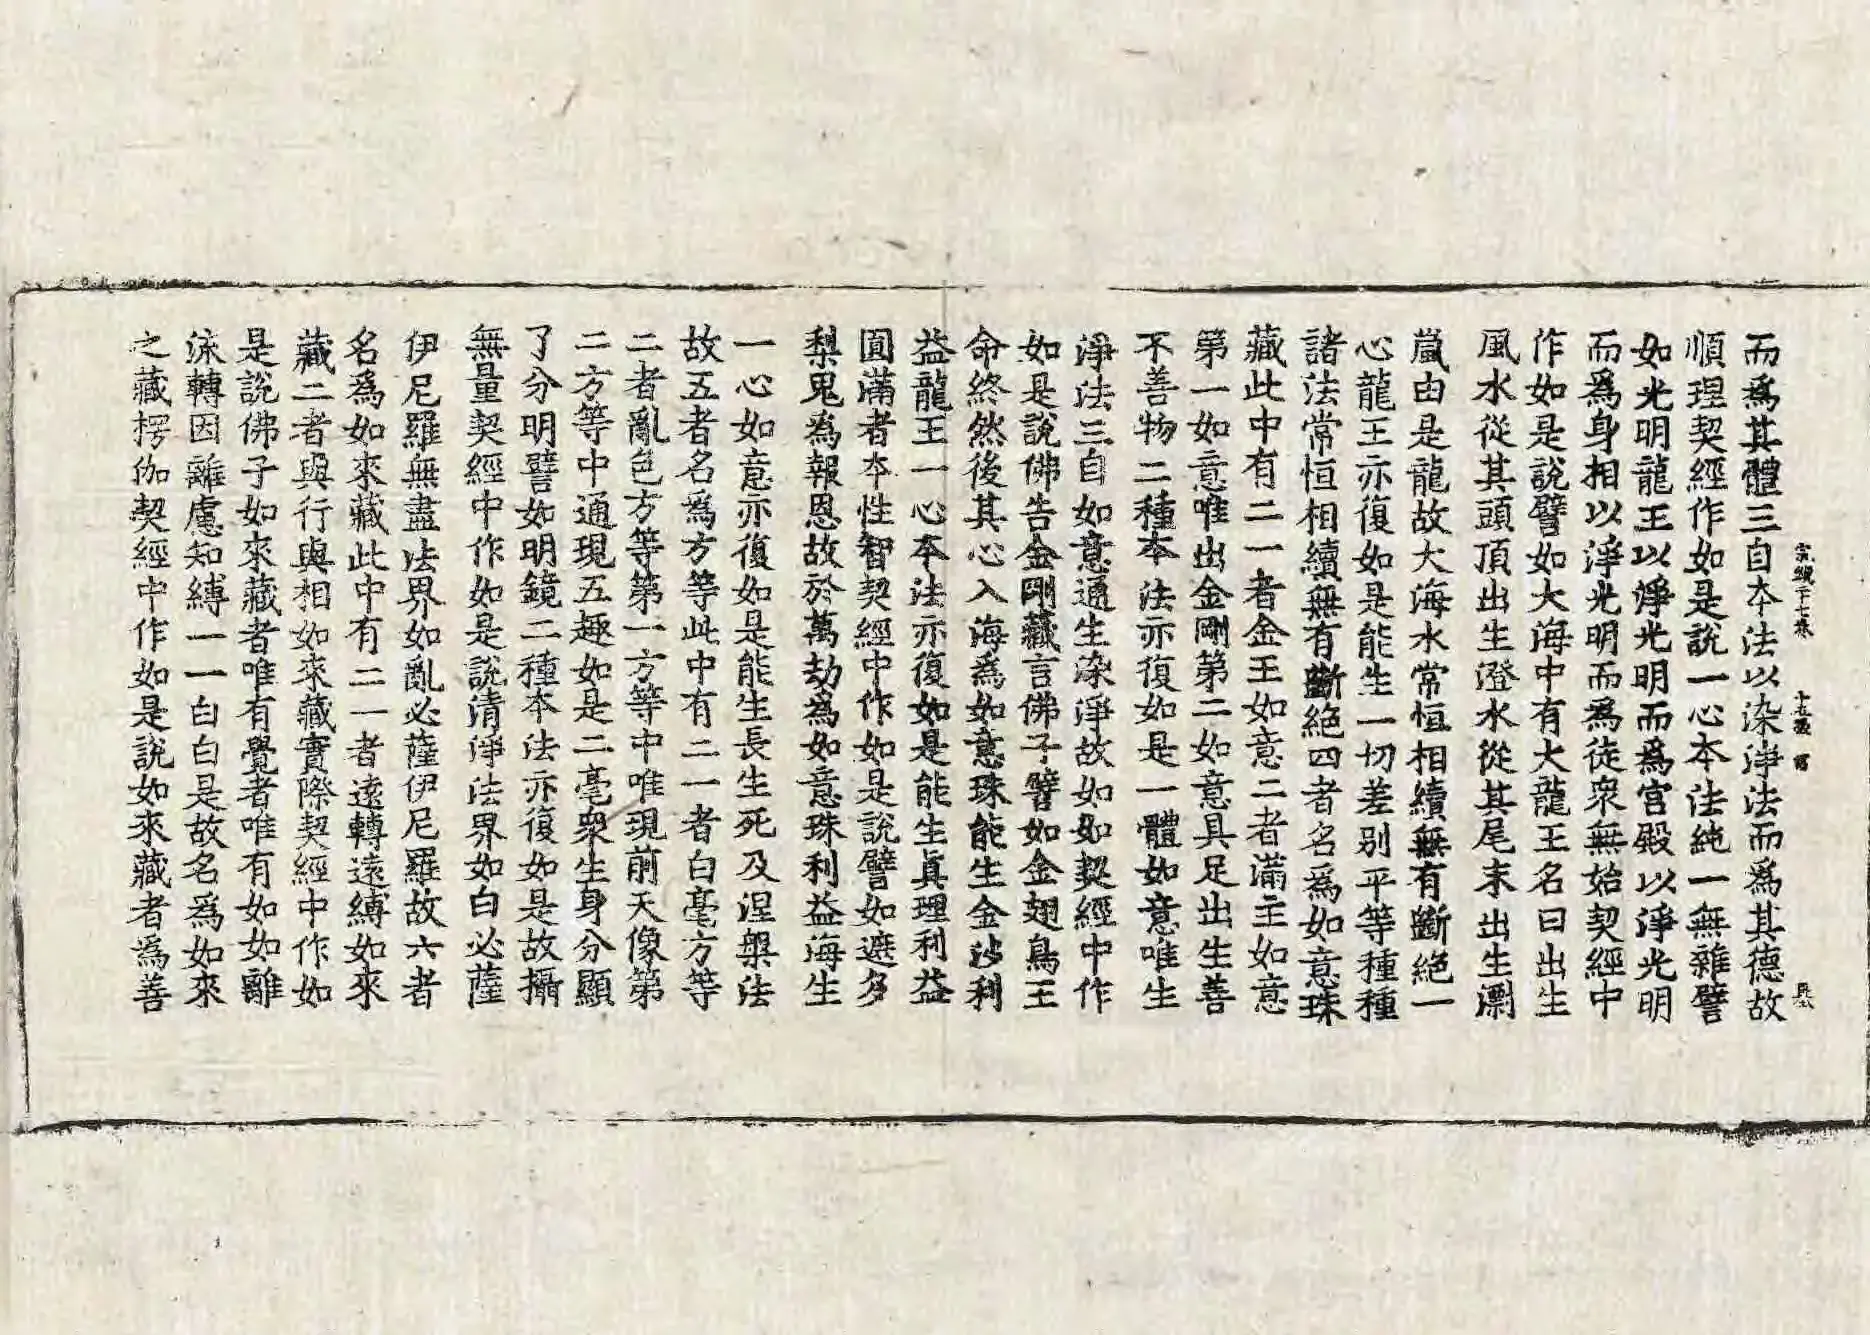 而爲其體三自夲法以染淨法而爲其德故
順理契經作如是說一心本法純一無雜譬
如光明龍王以淨光明而爲宮殿以淨光明
而爲身相以淨光明而爲徒衆無始契經中
作如是說譬如大海中有大龍王名曰出生
風水從其頭頂出生澄水從其尾末出生𠞰
嵐由是龍故大海水常恒相續無有斷絕一
心龍王亦復如是能生一切差別平等種種
諸法常恒相續無有斷絕四者名爲如意珠
藏此中有二一者金王如意二者滿主如意
第一如意唯出金剛第二如意具足出生善
不善物二種本法亦復如是一體如意唯生
淨法三自如意通生染淨故如如契經中作
如是說佛告金剛藏言佛子譬如金翅鳥王
命終然後其心入海爲如意珠能生金沙利
益龍王一心本法亦復如是能生眞理利益
圓滿者夲性智契經中作如是說譬如遮多
梨鬼爲報恩故於萬劫爲如意珠利益海生
一心如意亦復如是能生長生死及涅槃法
故五者名爲方等此中有二一者白毫方等
二者亂色方等第一方等中唯現前天像第
二方等中通現五趣如是二毫衆生身分顯
了分明譬如明鏡二種本法亦復如是故攝
無量契經中作如是說清淨法界如白必薩
伊尼羅無盡法界如亂必薩伊尼羅故六者
名爲如來藏此中有二一者遠轉遠縛如來
藏二者與行與相如來藏實際契經中作如
是說佛子如來藏者唯有覺者唯有如如離
流轉因離慮知縛一一白白是故名爲如來
之藏楞伽契經中作如是說如來藏者爲善